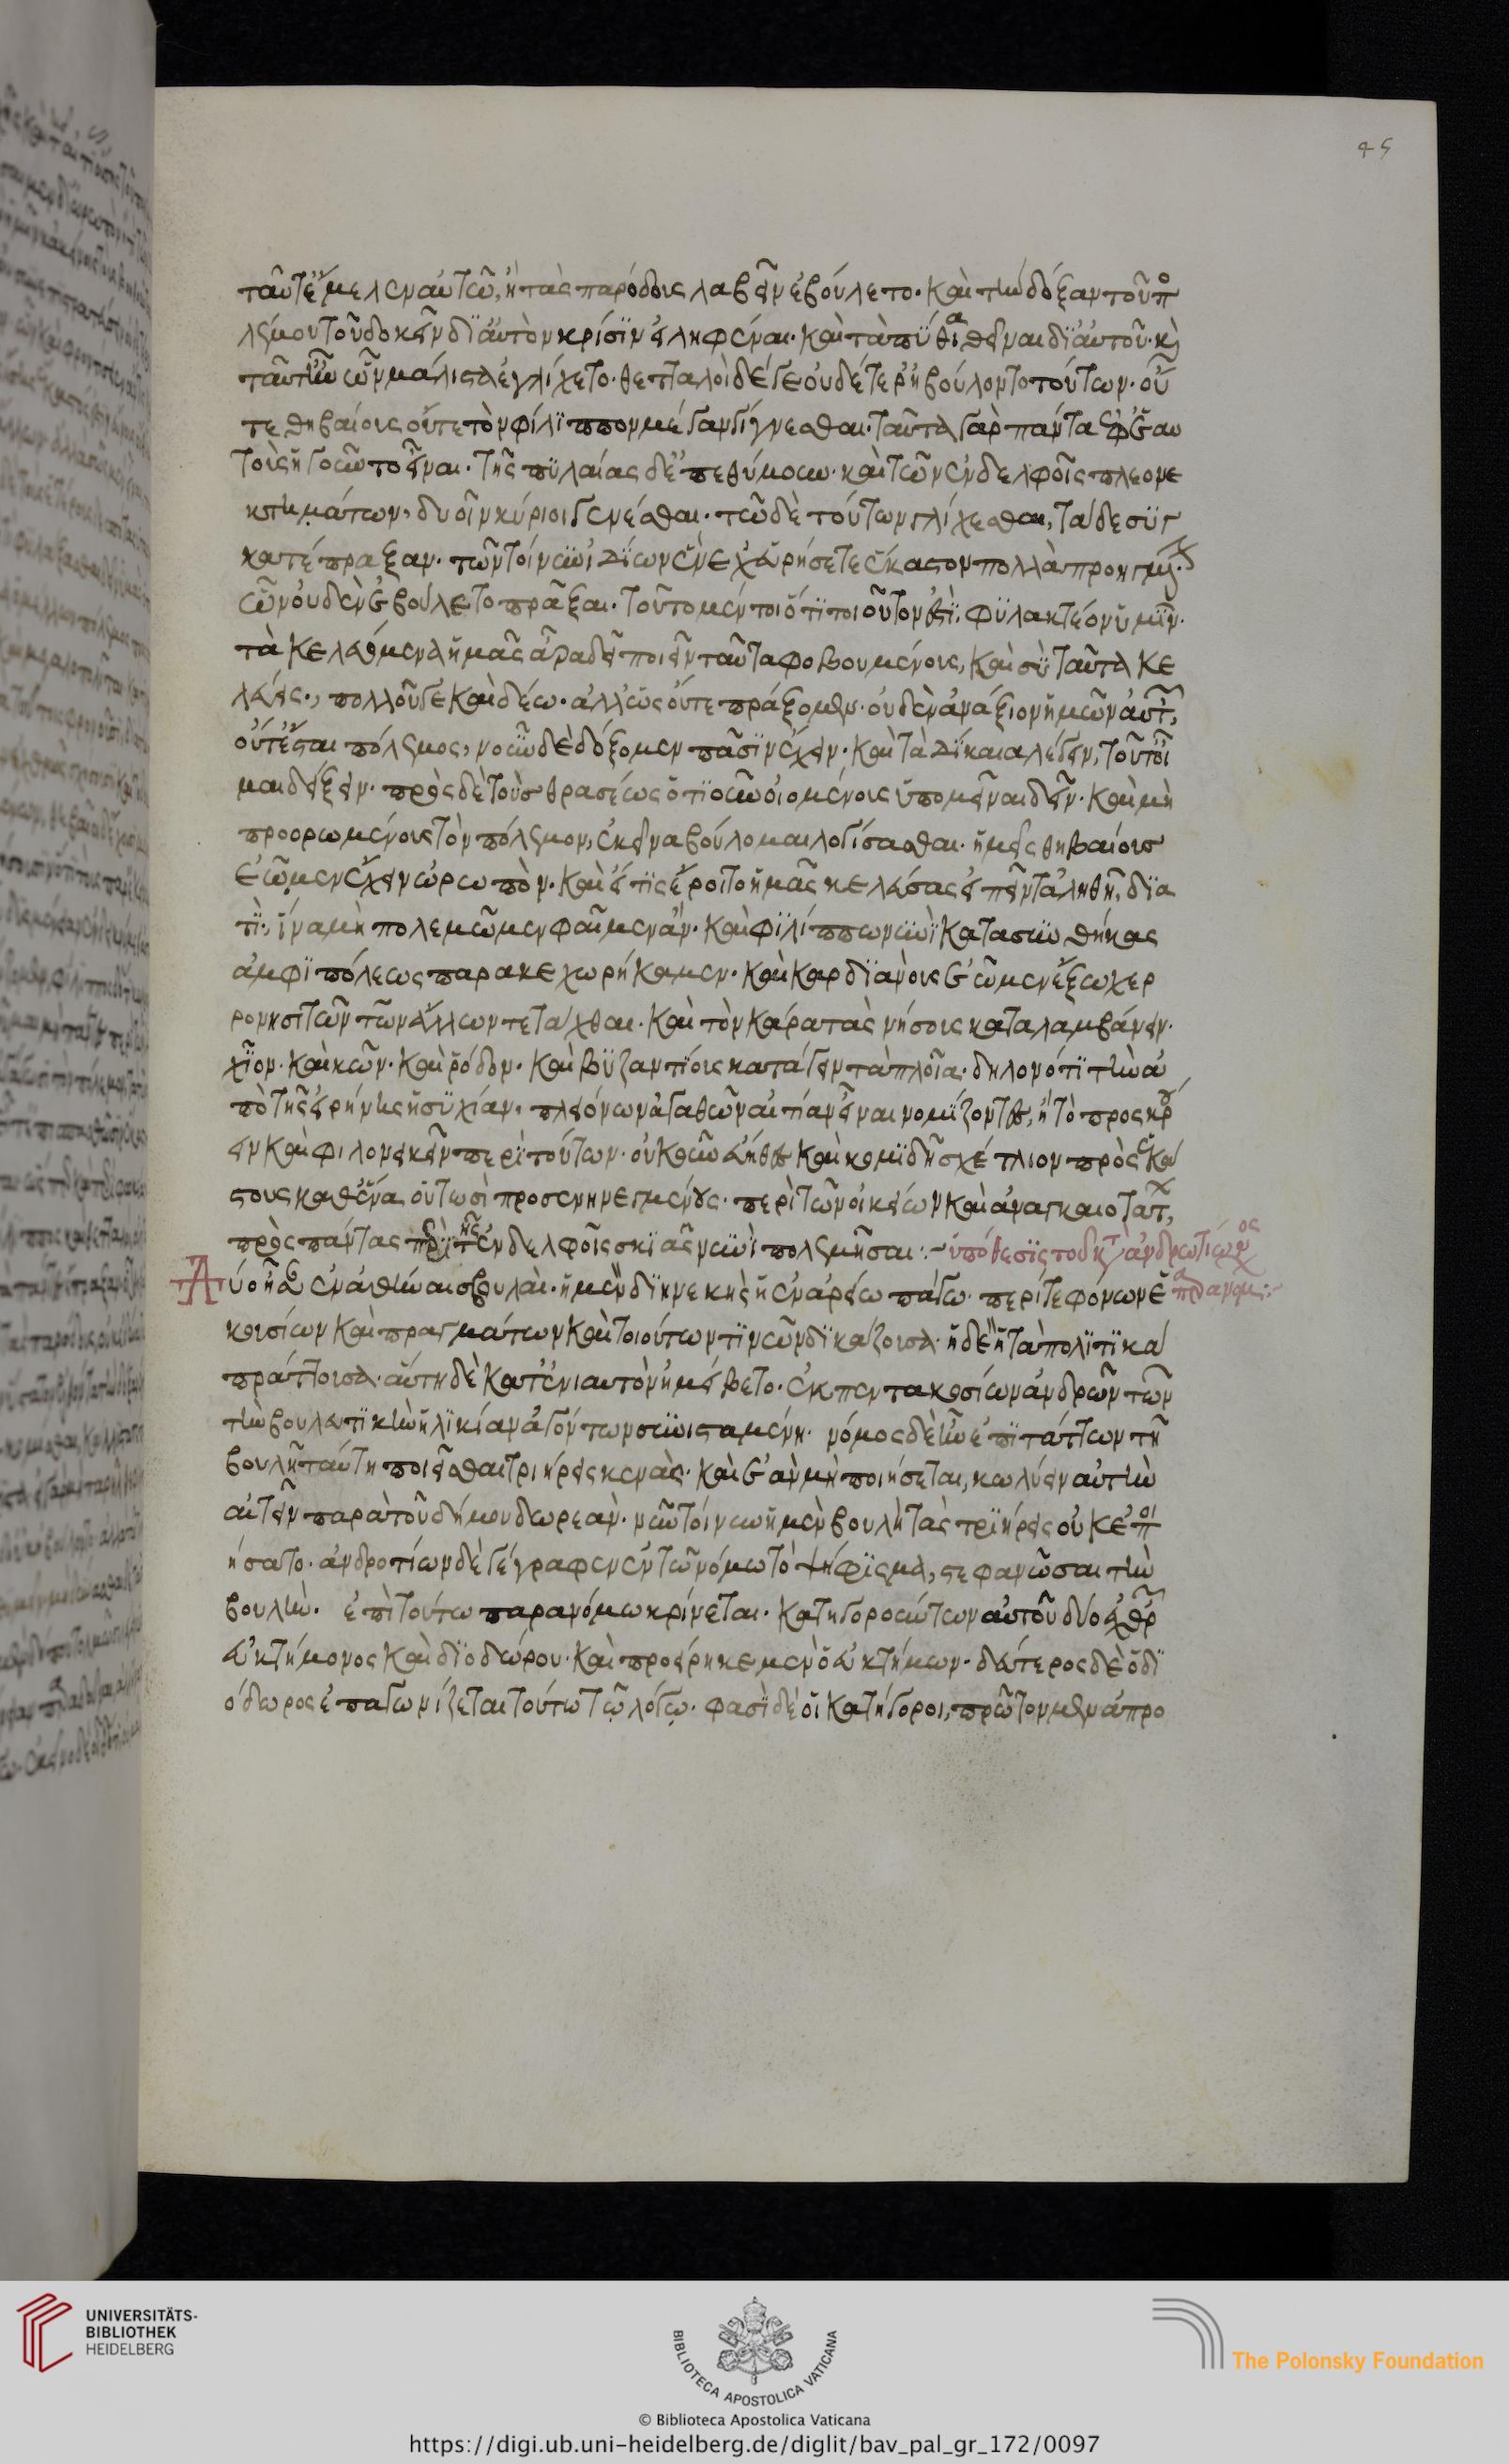 45
ταῦτ' ἔμελεν αὐτῶ, ἢ τὰς παρόδους λαβεῖν ἐβούλετο. καὶ τὴν δόξαν τοῦ πο
λέμου τοῦ δοκεῖν δι' αὐτὸν κρίσιν εἰληφέναι. καὶ τὰ πύθια θεῖναι δι' αὐτοῦ. καὶ
ταῦτ' ἦν ὧν μάλιστ' ἐγλίχετο. θετταλοὶ δέ γε οὐδέτερ' ἠβούλοντο τούτων. οὔ
τε θηβαίους οὔτε τὸν φίλιππον μέγαν γίγνεσθαι. ταῦτα γὰρ πάντα ἐφ' ἑαυ
τοὺς ἡγοῦντο εἶναι. τῆς πυλαίας δ' ἐπεθύμουν. καὶ τῶν ἐν δελφοῖς πλεονε
κτημάτων, δυοῖν κύριοι γενέσθαι. τῶ δὲ τούτων γλίχεσθαι, τάδε συγ
κατέπραξαν. τῶν τοίνυν ἰδίων ἕνεχ' εὑρήσετε ἕκαστον πολλὰ προηγμέν.
ὧν οὐδὲν ἐβούλετο πρᾶξαι. τοῦτο μέντοι ὅτι τοιοῦτον ἐστι, φυλακτέον ὑμῖν.
τὰ κελευόμενα ἡμᾶς ἄρα δεῖ ποιεῖν ταῦτα φοβουμένους, καὶ σὺ ταῦτα κε
λεύεις., πολλοῦ γε καὶ δέω. ἀλλ' ὡς οὔτε πράξομεν. οὐδὲν ἀνάξιον ἡμῶν αὐτ,
οὔτ' ἔσται πόλεμος, νοῦν δὲ δόξομεν πᾶσιν ἔχειν. καὶ τὰ δίκαια λέγειν, τοῦτ' οἶ
μαι δείξειν. πρὸς δὲ τοὺς θρασέως ὁτιοῦν οἰομένους ὑπομεῖναι δεῖν. καὶ μὴ
προορωμένους τὸν πόλεμον, ἐκεῖνα βούλομαι λογίσασθαι. ἡμεῖς θηβαίους
ἐῶμεν ἔχειν ὠρωπὸν. καὶ εἴ τις ἔροιτο ἡμᾶς κελεύσας εἰπεῖν τἀληθῆ, δια
τί., ἵνα μὴ πολεμῶμεν φαῖμεν ἄν. καὶ φιλίππω νυνὶ κατὰ συνθήκας
ἀμφιπόλεως παρακεχωρήκαμεν. καὶ καρδιανοὺς ἐῶμεν ἔξω χερ
ρονησιτῶν τῶν ἄλλων τετάχθαι. καὶ τὸν κᾶρα τὰς νήσους καταλαμβάνειν.
χῖον. καὶ κῶν. καὶ ῥόδον. καὶ βυζαντίους κατάγειν τὰ πλοῖα. δηλονότι τὴν ἀ
πὸ τῆς εἰρήνης ἡσυχίαν, πλειόνων ἀγαθῶν αἰτίαν εἶναι νομίζοντες, ἢ τὸ προσκρού
ειν καὶ φιλονεικεῖν περὶ τούτων. οὐκοῦν εὔηθες καὶ κομιδῆ σχέτλιον πρὸς ἑκά
στους καθ' ἕνα οὕτωσὶ προσενηνεγμένους. περὶ τῶν οἰκείων καὶ ἀναγκαιοτάτ,
πρὸς πάντας περὶ τῆς ἐν δελφοῖς σκιᾶς νυνὶ πολεμῆσαι:~ ὑπόθεσις τοῦ κατ' ἀνδροτίωνος
Δύο ἦσαν ἐν ἀθήναις βουλαὶ. ἡ μὲν διηνεκὴς ἡ ἐν ἀρείω πάγω. περί τε φόνων ἑ παρανόμ:~
κουσίων καὶ πραγμάτων καὶ τοιούτων τινῶν δικάζουσα. ἡ δὲ ἡ τὰ πολιτικὰ
πράττουσα. αὕτη δὲ κατ' ἐνιαυτὸν ἠμείβετο. ἐκ πεντακοσίων ἀνδρῶν τῶν
τὴν βουλευτικὴν ἡλικίαν ἀγόντων συνισταμένη. νόμος δὲ ἦν ἐπιτάττων τῆ
βουλῆ ταύτη ποιεῖσθαι τριήρεις κενὰς. καὶ ἐὰν μὴ ποιήσηται, κωλύειν αὐτὴν
αἰτεῖν παρὰ τοῦ δήμου δωρεάν. νῦν τοίνυν ἡ μὲν βουλὴ τὰς τριήρεις οὐκ ἐποι
ήσατο. ἀνδροτίων δὲ γέγραφεν ἐν τῶ νόμω τὸ ψήφισμα, στεφανῶσαι τὴν
βουλήν. ἐπὶ τούτω παρανόμω κρίνεται. κατηγορούντων αὐτοῦ δύο ἐχθρ
εὐκτήμονος καὶ διοδώρου. καὶ προείρηκε μὲν ὁ εὐκτήμων. δεύτερος δὲ ὁ δι
όδωρος ἐπαγωνίζεται τούτω τῶ λόγω. φασὶ δὲ οἱ κατήγοροι, πρῶτον μὲν ἀπρο
UNIVERSITÄTS-
BIBLIOTHEK
HEIDELBERG
BIBLIOTECA APOSTOLICA VATICANA
The Polonsky Foundation
© Biblioteca Apostolica Vaticana
https://digi.ub.uni-heidelberg.de/diglit/bav_pal_gr_172/0097